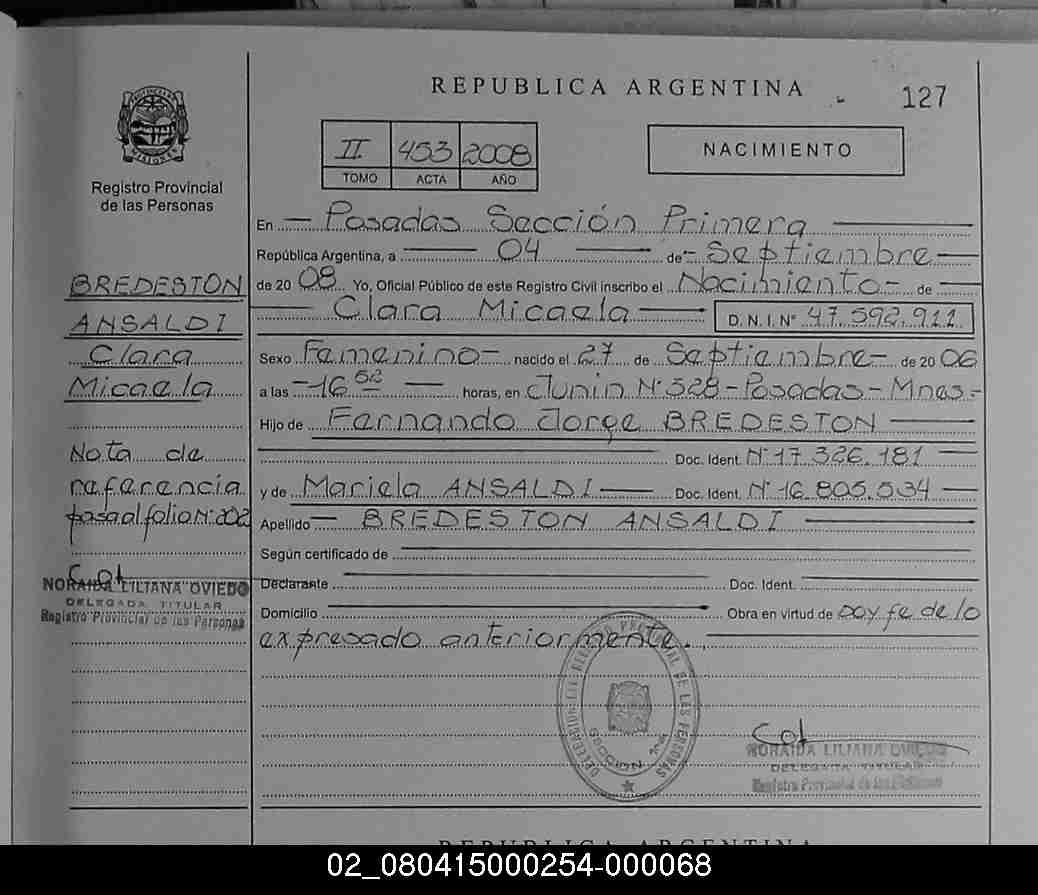 REPUBLICA ARGENTINA
127
Registro Provincial
de las Personas
II 453 2008
TOMO ACTA AÑO
NACIMIENTO
En Posadas Sección Primera
República Argentina, a 04 de Septiembre
de 2008 Yo, Oficial Público de este Registro Civil inscribo el Nacimiento de
Clara Micaela D. N. I. Nº 47.592.911
Sexo Femenino nacido el 27 de Septiembre de 2006
a las 16 52 horas, en Junin Nº 528 - Posadas - Mnes.-
Hijo de Fernando Jorge BREDESTON
Doc. Ident. Nº 17.326.181
y de Mariela ANSALDI Doc. Ident. Nº 16.805.534
Apellido BREDESTON ANSALDI
Según certificado de
Declarante Doc. Ident.
Domicilio Obra en virtud de Doy fe de lo
expresado anteriormente.
BREDESTON
ANSALDI
Clara
Micaela
Nota de
referencia
pasa al folio Nº 202
NORAIDA LILIANA OVIEDO
DELEGADA TITULAR
Registro Provincial de las Personas
NORAIDA LILIANA OVIEDO
DELEGADA TITULAR
Registro Provincial de las Personas
REPUBLICA ARGENTINA
02_080415000254-000068